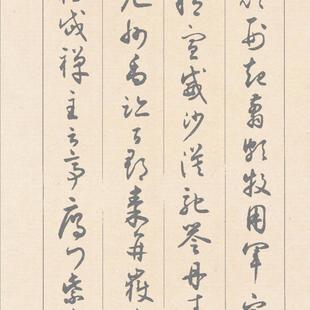 起翦頗牧用軍
宣威沙漠馳譽丹
州禹跡百郡秦并嶽
禪主云亭雁門紫